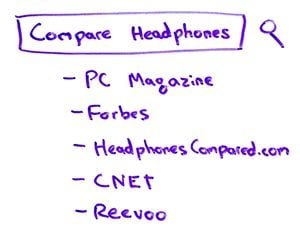 Compare Headphones
- PC Magazine
- Forbes
- HeadphonesCompared.com
- CNET
- Reevoo